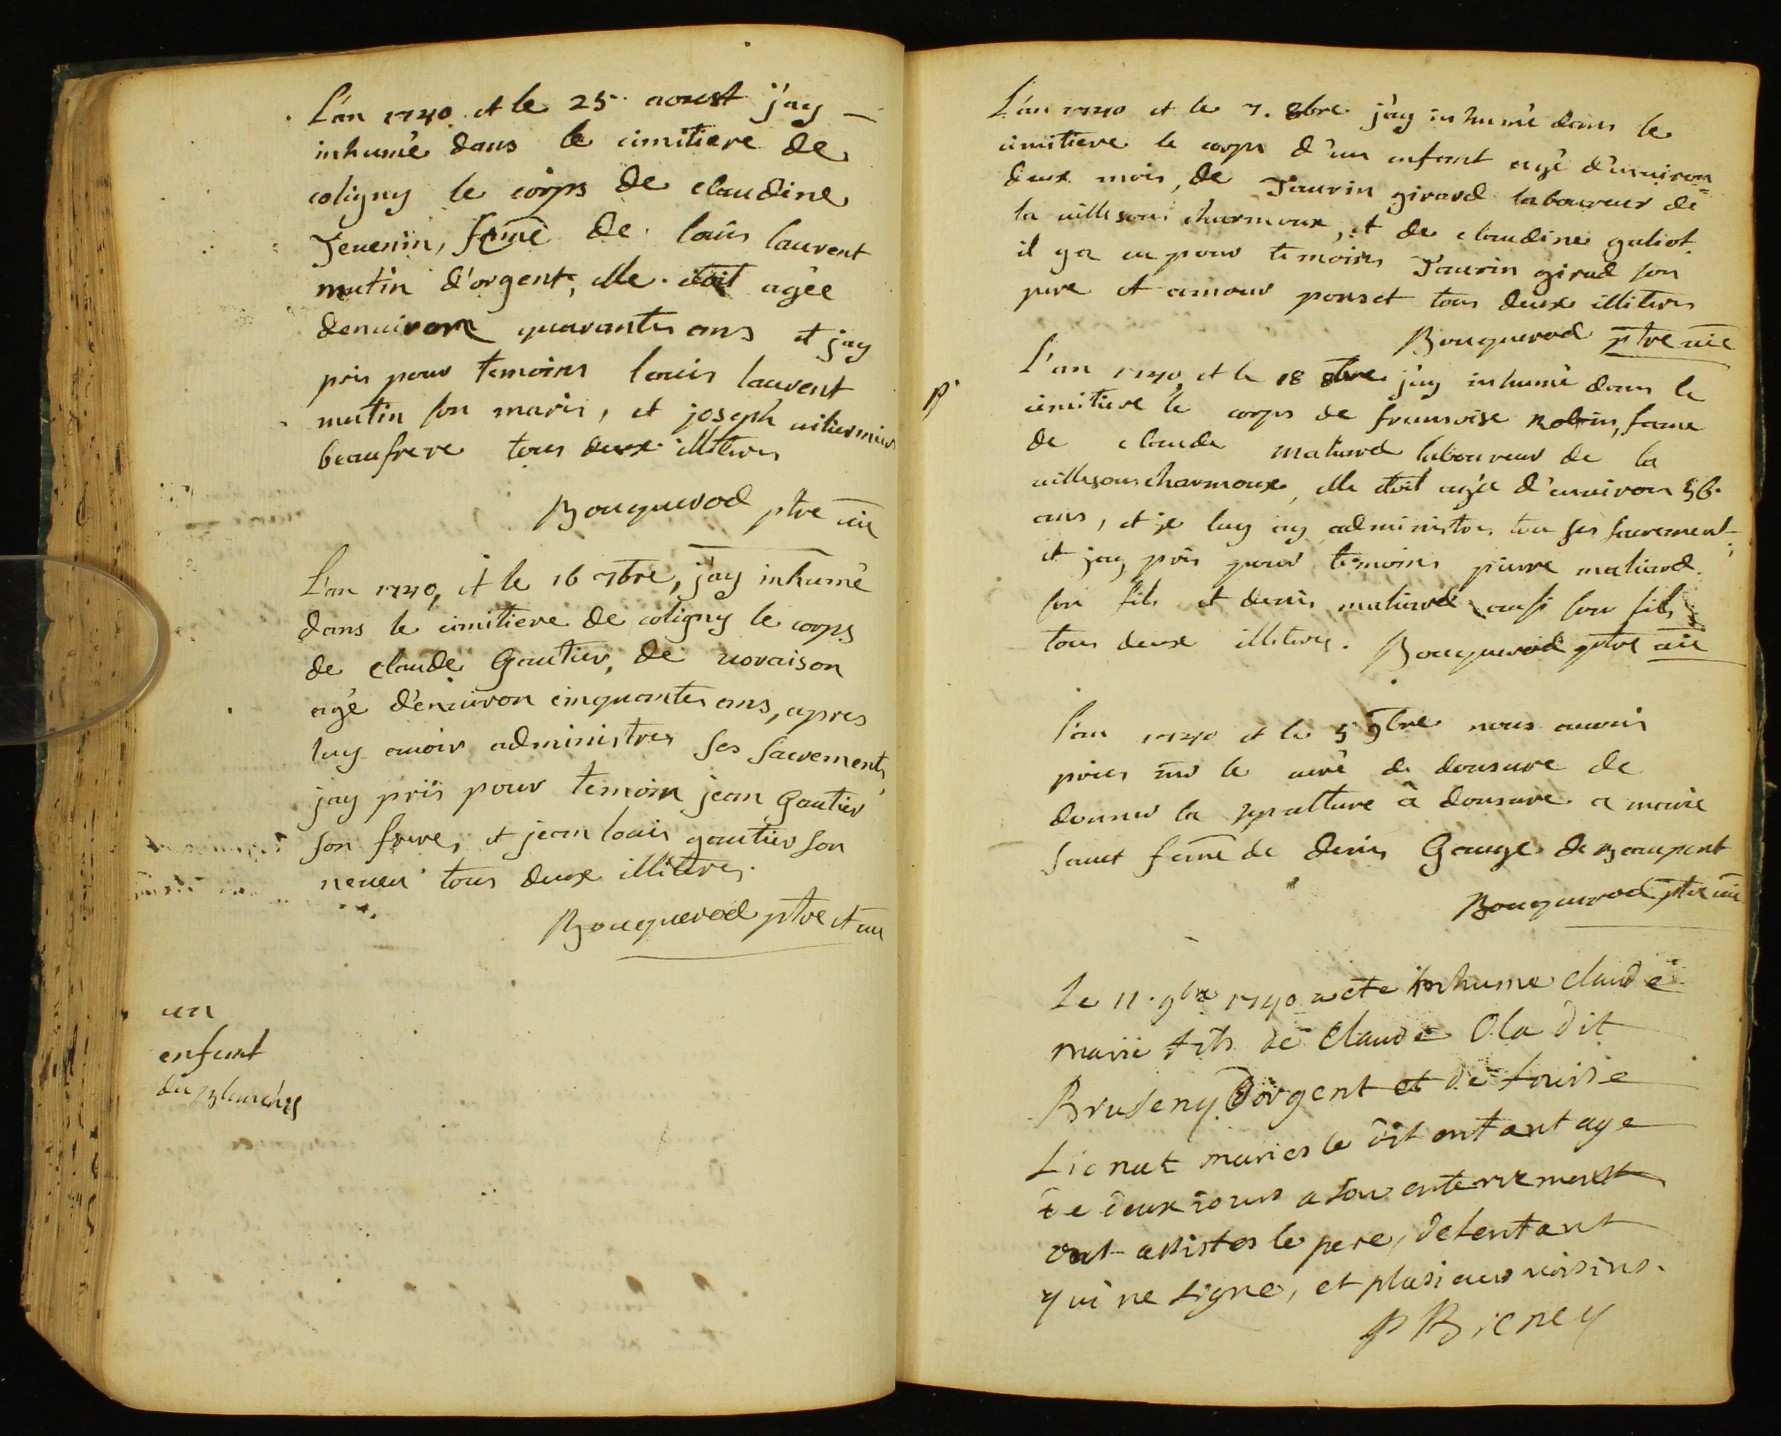 L'an 1740. et le 25. aoust j'ay
inhumé dans le cimitiere de
coligny le corps de claudine
Jevenin, femē de loüis laurent
mutin d'orgent, elle etoit agée
denuiron quarantes ans et jay
pris pour temoins louis laurent
mutin son maris, et joseph
beaufrere tous deux illiteres
Bouquerod ptre
L'an 1740, et le 16 7bre, j'ay inhumé
dans le cimitiere de coligny le corps
de claude Gautier, de
agé d'enuiron cinquantes ans, apres
luy auoir administres ses sacrements,
jay pris pour temoin jean Gautier
son frere, et jean louis gautier son
neueu tous deux illiteres.
Bouquerod ptre et
un
enfant
du blanchy
L'an 1740 et le 7. 8bre j'ay inhumé dans le
cimitiere le corps d'un enfant agé d'enuiron
deux mois, de Taurin girard laboureur de
la uille sous charmoux, et de claudine galiot.
il y a eu pour temoins Taurin girad son
pere et amour ponset tous deux illiteres
Bouquerod ptre
L'an 1740, et le 18 8bre j'ay inhumé dans le
cimitiere le corps de fransoise Robin, fame
de claude maliard laboureur de la
uillesouscharmoux, elle etoit agée d'enuiron 56.
ans, et je luy ay administres tou ses sacrement;
et jay pris pour temoins pierre maliard
son fils et denis maliard aussi son fils
tous deux illiteres. Bouquerod ptre
L'an 1740 et le 5 9bre nous auons
priés le curé de donsure de
donner la sepulture â donsure a marie
femē de denis Gauge de beaupont
Bouquerod ptre
Le 11. 9bre 1740 a ete inhume claude
marie fils de Claude Ola dit
Bruseny Dorgent et de Louise
Lienat maries le dit enfant age
de deux iours a son enterrement
ont assistes le pere, de lenfant
qui ne signe, et plusieurs uoisins.
P Bieney